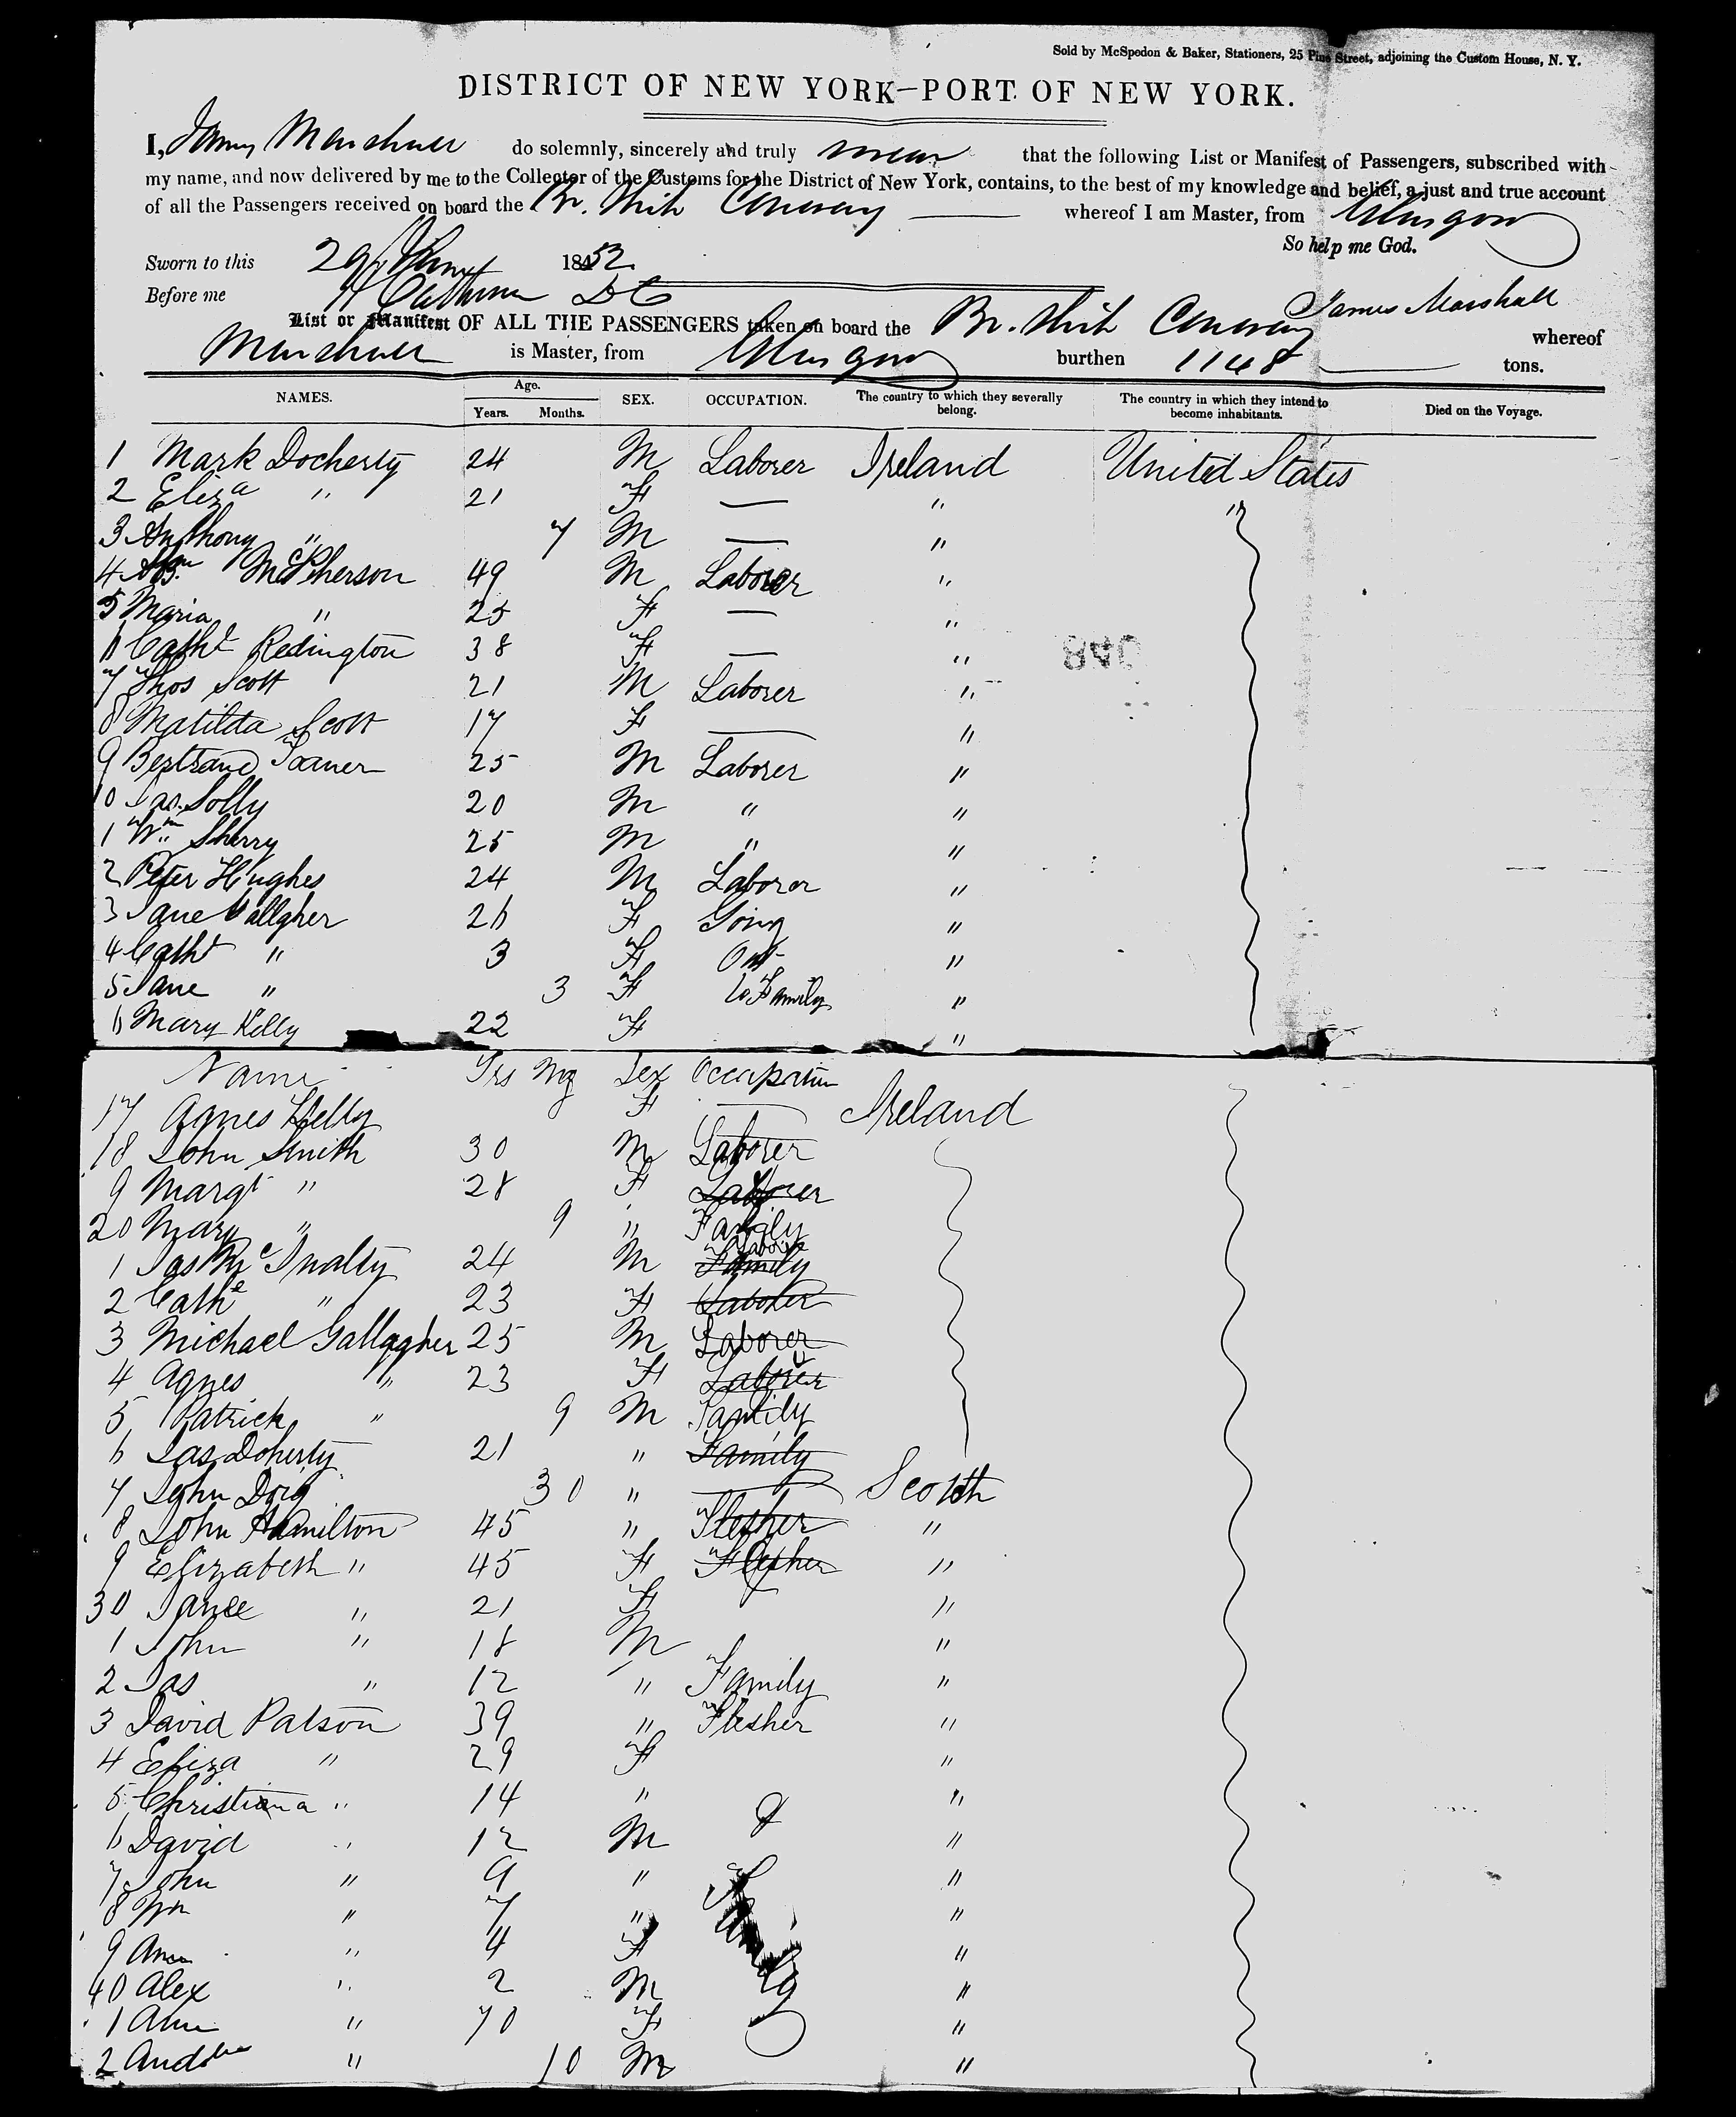 Sold by McSpedon & Baker, Stationers, 25 Pine Street, adjoining the Custom House, N. Y.
DISTRICT OF NEW YORK—PORT OF NEW YORK.
I, James Marshall do solemnly, sincerely and truly swear that the following List or Manifest of Passengers, subscribed with
my name, and now delivered by me to the Collector of the Customs for the District of New York, contains, to the best of my knowledge and belief, a just and true account
of all the Passengers received on board the Br. Ship whereof I am Master, from Glasgow
So help me God.
Sworn to this 29 1852
Before me DC
James Marshall
List or Manifest OF ALL THE PASSENGERS taken on board the Br. Ship whereof
Marshall is Master, from Glasgow burthen 1148 tons.
NAMES. Age. Years. Months. SEX. OCCUPATION. The country to which they severally belong. The country in which they intend to become inhabitants. Died on the Voyage.
1 Mark Docherty 24 M Laborer Ireland United States
2 Eliza " 21 F — " "
3 Anthony " 7 M — "
4 McPherson 49 M Laborer "
5 Maria " 25 F — "
6 Catht Redington 38 F — "
7 Thos Scott 21 M Laborer "
8 Matilda Scott 17 F — "
9 Bertrand 25 M Laborer "
10 Jas. Solly 20 M " "
1 Wm Sherry 25 M " "
2 Peter Hughes 24 M Laborer "
3 Jane Gallgher 26 F Going "
4 Catht " 3 F Out "
5 Jane " 3 F to Family "
6 Mary Kelly 22 F "
Name Yrs Mo Sex Occupation
17 Agnes Kelly F — Ireland
18 John Smith 30 M Laborer
9 Margt " 28 F Laborer
20 Mary " 9 " Family
1 Jas 24 M Family Laborer
2 Cathe " 23 F Laborer
3 Michael Gallagher 25 M Laborer
4 Agnes " 23 F Laborer
5 Patrick " 9 M Family
6 Jas Doherty 21 " Family
7 John Doig 30 " — Scotch
8 John Hamilton 45 " Flesher "
9 Elizabeth " 45 F Flesher "
30 Janee " 21 F "
1 John " 18 M "
2 Jas " 12 " Family "
3 David Patson 39 " Flesher "
4 Eliza " 29 F "
5 Christiana " 14 " "
6 David " 12 M & "
7 John " 9 " Family "
8 Wm " 7 " "
9 Ann " 4 F "
40 Alex " 2 M "
1 Ann " 70 F "
2 " 10 M "